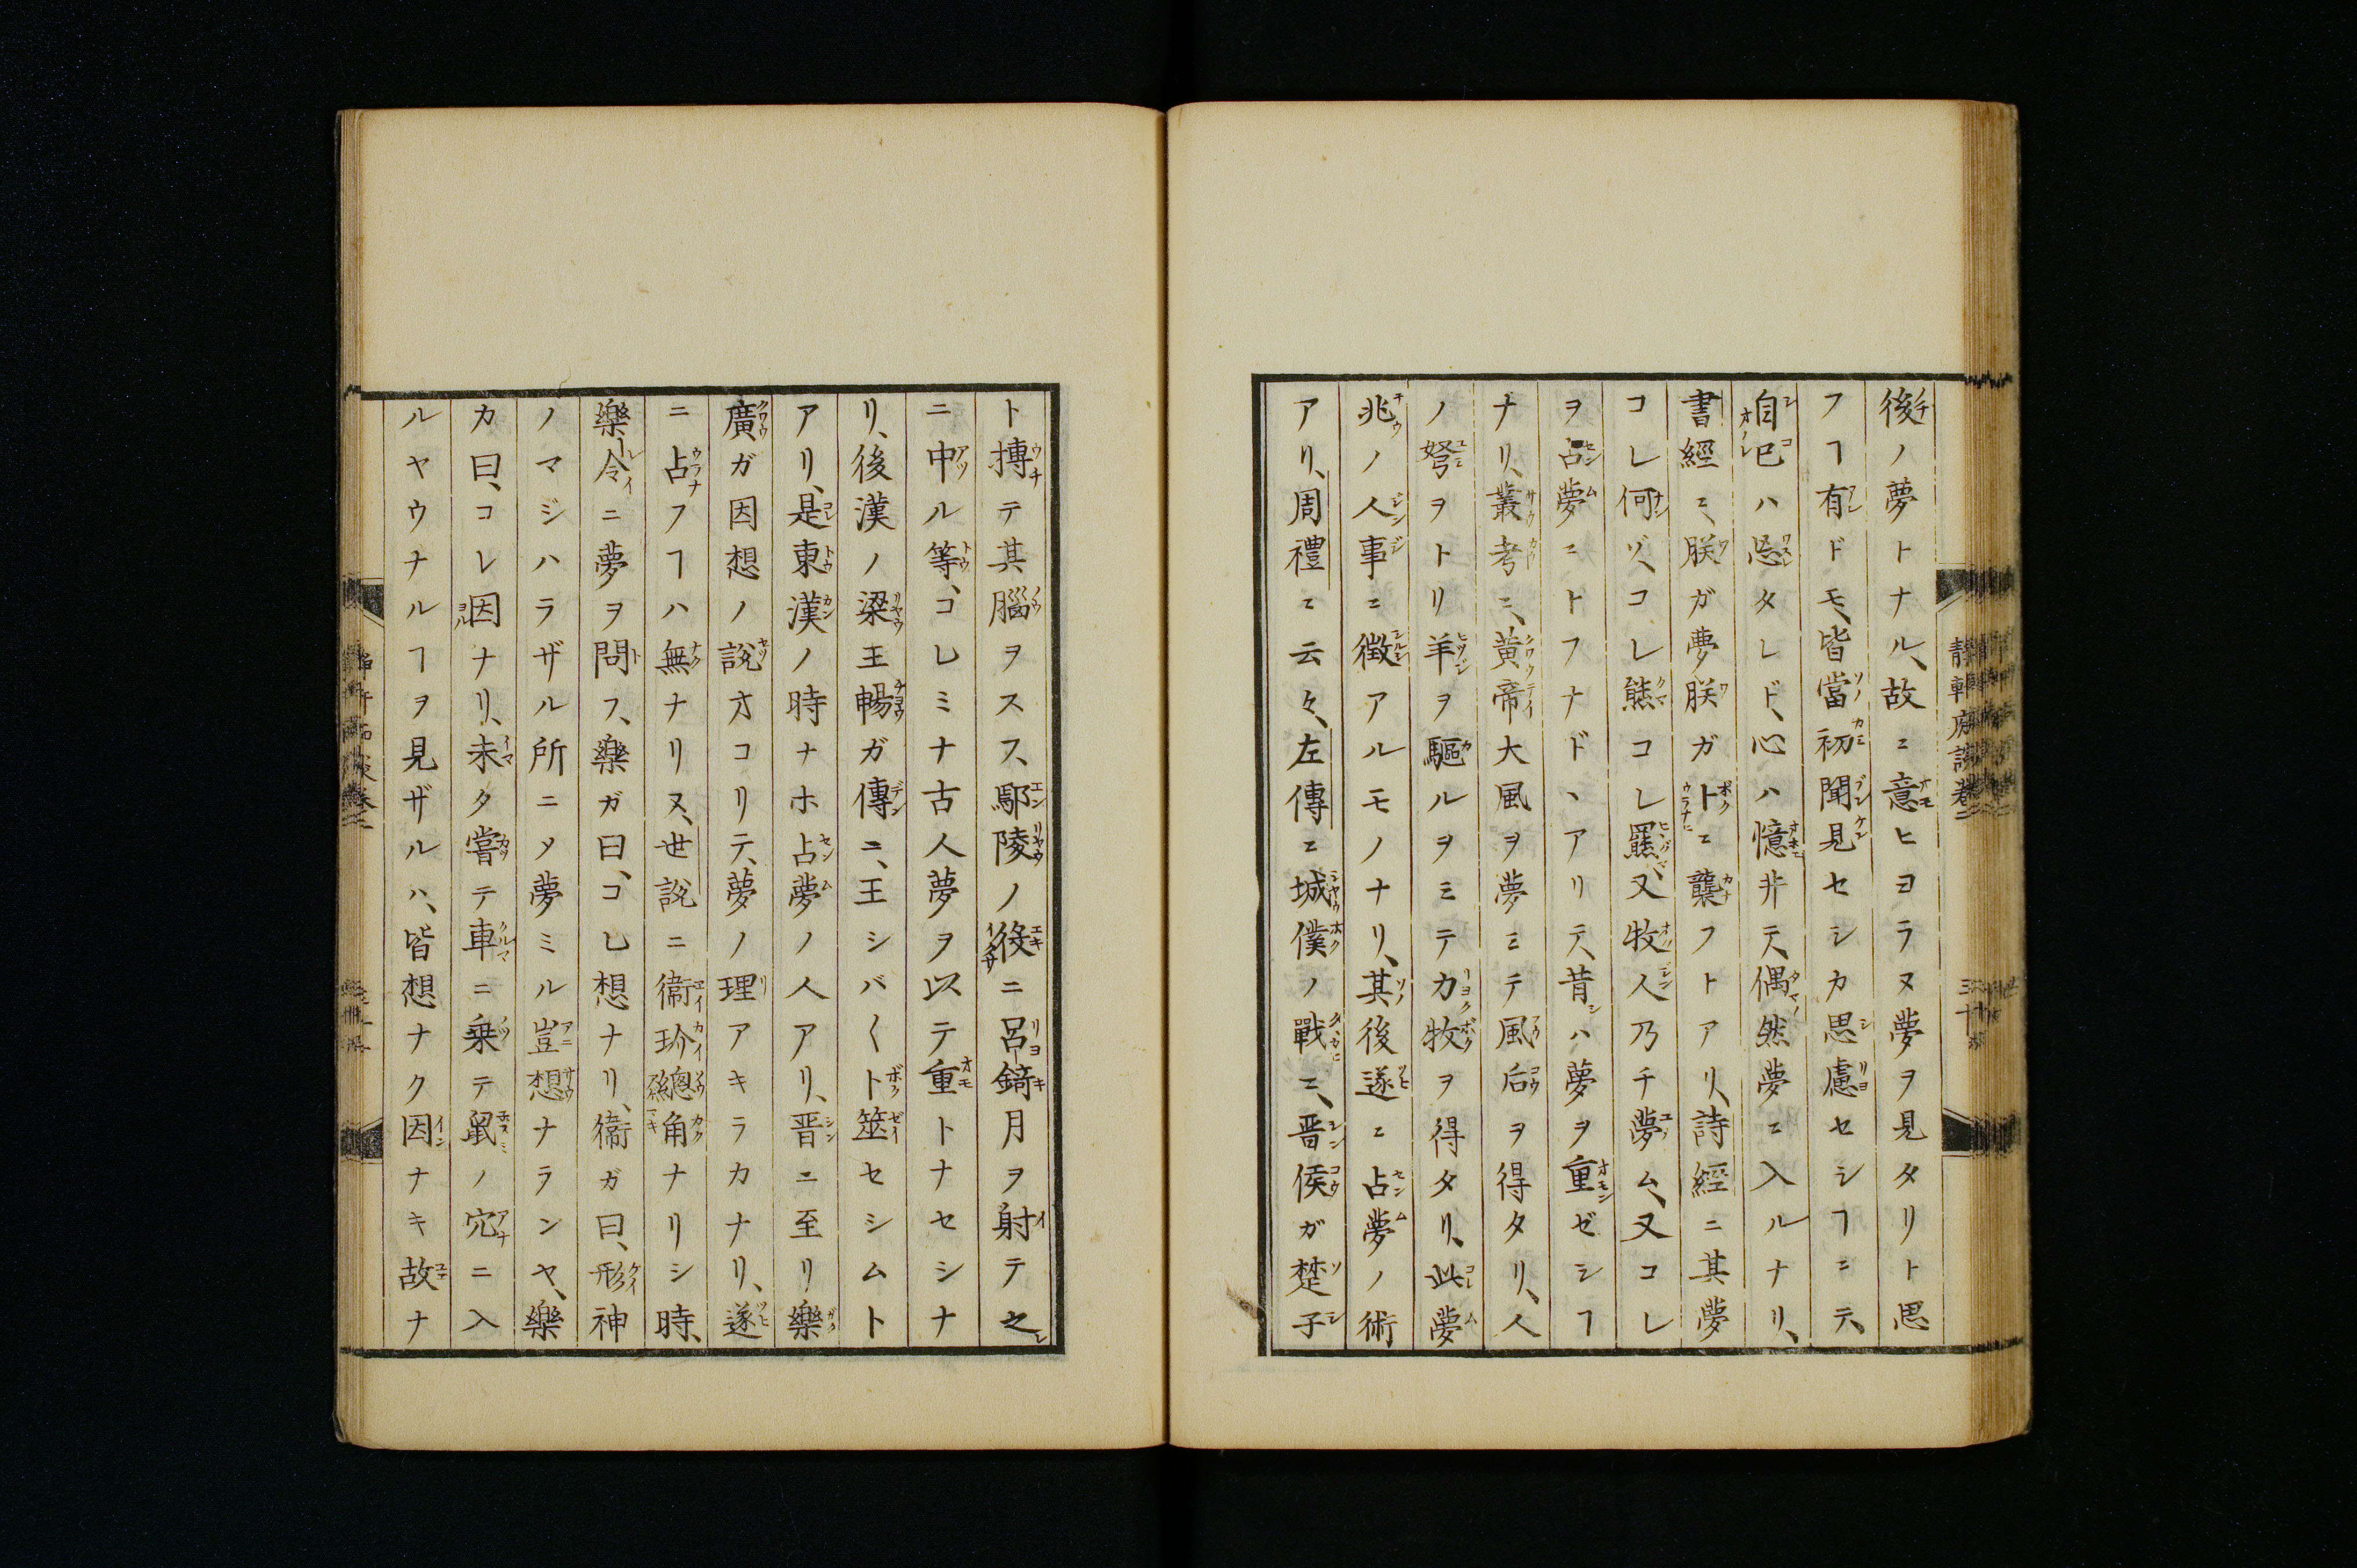 後ノ夢トナル、故ニ意ヒヨラヌ夢ヲ見タリト思
フヿ有ドモ、皆當初聞見セシカ思慮セシヿニテ、
自已ハ忘タレド、心ハ憶非テ、偶然夢ニ入ルナリ、
書經ニ、朕ガ夢朕ガトニ襲フトアリ、詩經ニ其夢
コレ何ゾ、コレ熊コレ羆、又牧人乃チ夢ム、又コレ
ヲ占夢ニトフナドヽアリテ、昔ハ夢ヲ重ゼシヿ
ナリ、叢考ニ、黄帝大風ヲ夢ミテ風后ヲ得タリ、人
ノ弩ヲトリ羊ヲ驅ルヲミテカ牧ヲ得タリ、此夢
兆ノ人事ニ徴アルモノナリ、其後遂ニ占夢ノ術
アリ、周禮ニ云々、左傳ニ城僕ノ戰ニ、晋侯ガ楚子
ト摶テ其腦ヲススフ、鄢陵ノ役ニ呂錡月ヲ射テ之
ニ中ル等、コレミナ古人夢ヲ以テ重トナセシナ
リ、後漢ノ梁王暢ガ傳ニ、王シバ〱卜筮セシムト
アリ、是東漢ノ時ナホ占夢ノ人アリ、晋ニ至リ樂
廣ガ因想ノ説オコリテ、夢ノ理アキラカナリ、遂
ニ占フヿハ無ナリヌ、世説ニ衞玠總角ナリシ時、
樂令ニ夢ヲ問フ、樂ガ曰、コレ想ナリ、衞ガ曰、形神
ノマジハラザル所ニメ夢ミル豈想ナランヤ、樂
カ曰、コレ因ナリ、未タ嘗テ車ニ乗テ鼠ノ穴ニ入
ルヤウナルヿヲ見ザルハ、皆想ナク因ナキ故ナ